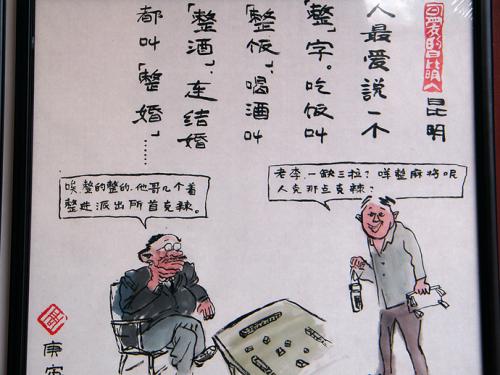 可爱的昆明人
昆明
人最爱说一个
「整」字。吃饭叫
「整饭」,喝酒叫
「整酒」,连结婚
都叫「整婚」……
老李,一缺三拉?咩整麻将呢
人克那点克辣?
唉,整的整的,他哥几个着
整进派出所首克辣。
庚寅